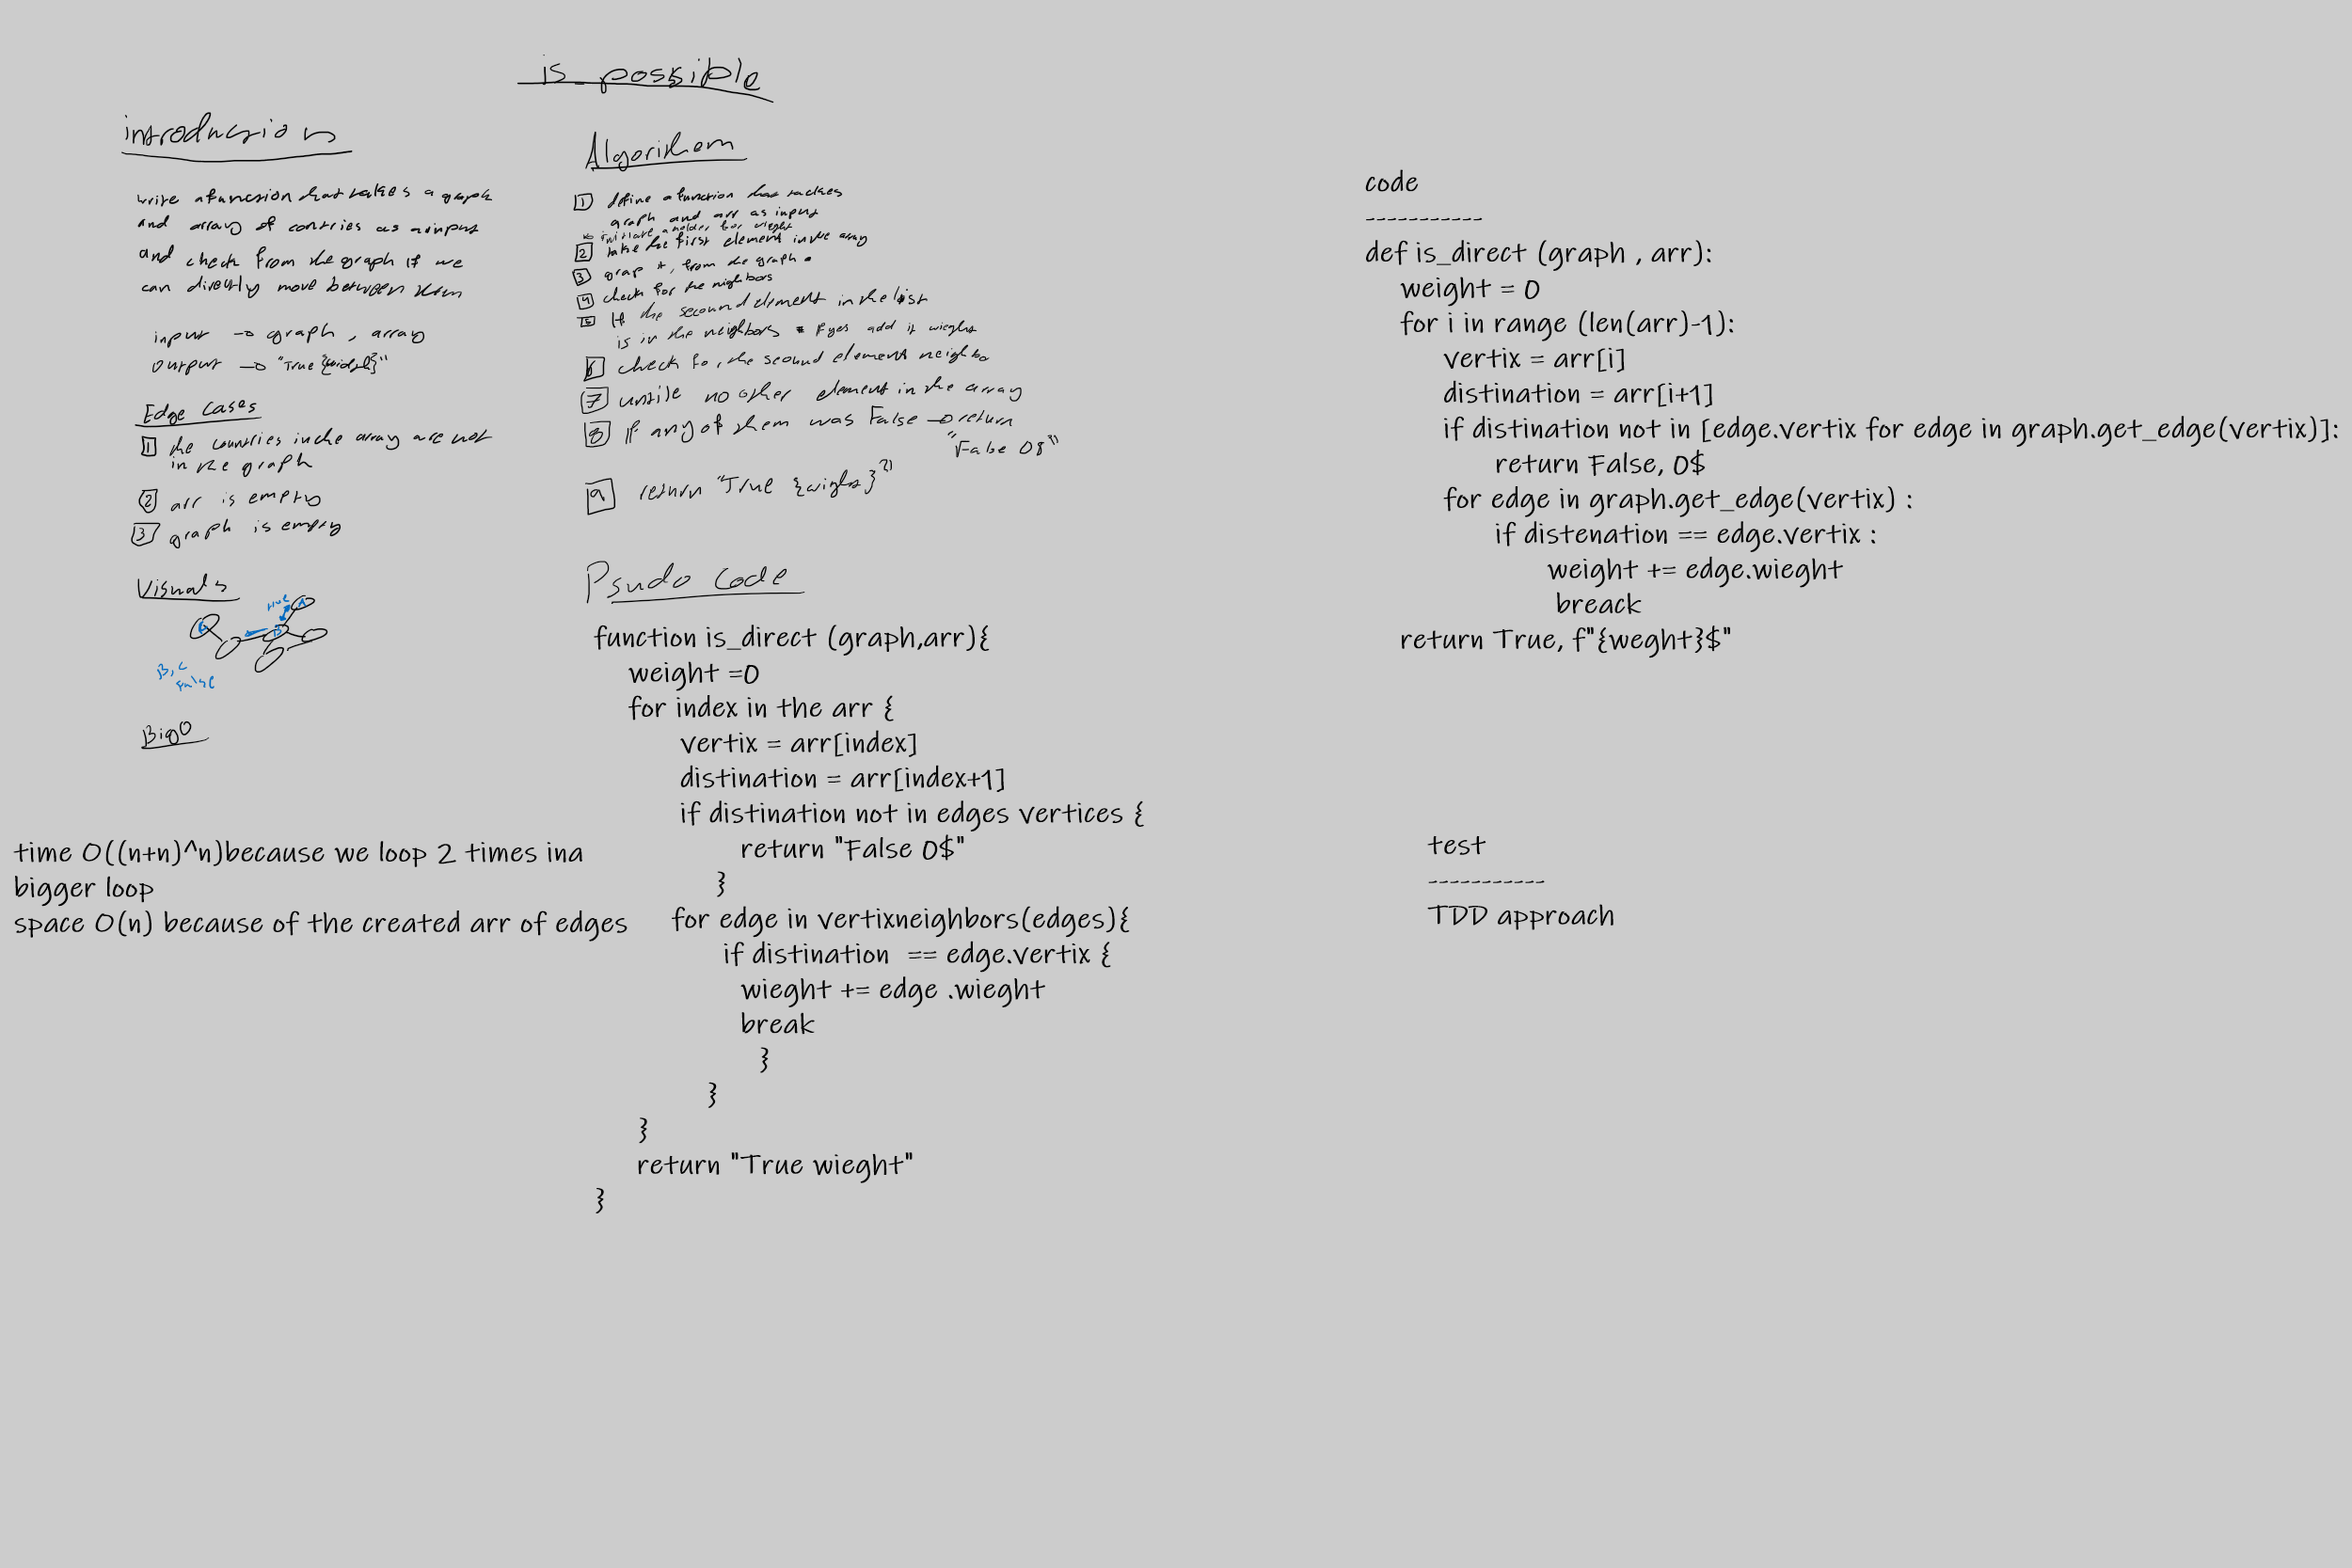 is_possible
introduction
write a function that takes a graph
and array of contries as ainput
and check from the graph if we
can directly move between them
input → graph, array
output → "True {
Edge Cases
1 the countries in the array are not
in the graph
2 arr is empty
3 graph is empty
Visuals
true
A
B
B, C
False
BigO
time O((n+n)^n)because we loop 2 times ina
bigger loop
space O(n) because of the created arr of edges
Algorithem
1 define a function that
graph and arr as input
initiate a holder for wieght
2 take the first element in the array
3 grap it, from the graph
4 check for the nighbors
5 If the secound element in the list
is in the neighbors if yes add it wieght
6 check for the secound element neighbo
7 untile no other element in the array
8 If any of them was False → return
"False 0$"
9 return "True {wieght}"
Psudo code
function is_direct (graph,arr){
weight =0
for index in the arr {
vertix = arr[index]
distination = arr[index+1]
if distination not in edges vertices {
return "False 0$"
}
for edge in vertixneighbors(edges){
if distination == edge.vertix {
wieght += edge .wieght
break
}
}
}
return "True wieght"
}
code
-----------
def is_direct (graph , arr):
weight = 0
for i in range (len(arr)-1):
vertix = arr[i]
distination = arr[i+1]
if distination not in [edge.vertix for edge in graph.get_edge(vertix)]:
return False, 0$
for edge in graph.get_edge(vertix) :
if distenation == edge.vertix :
weight += edge.wieght
breack
return True, f"{weght}$"
test
-----------
TDD approach